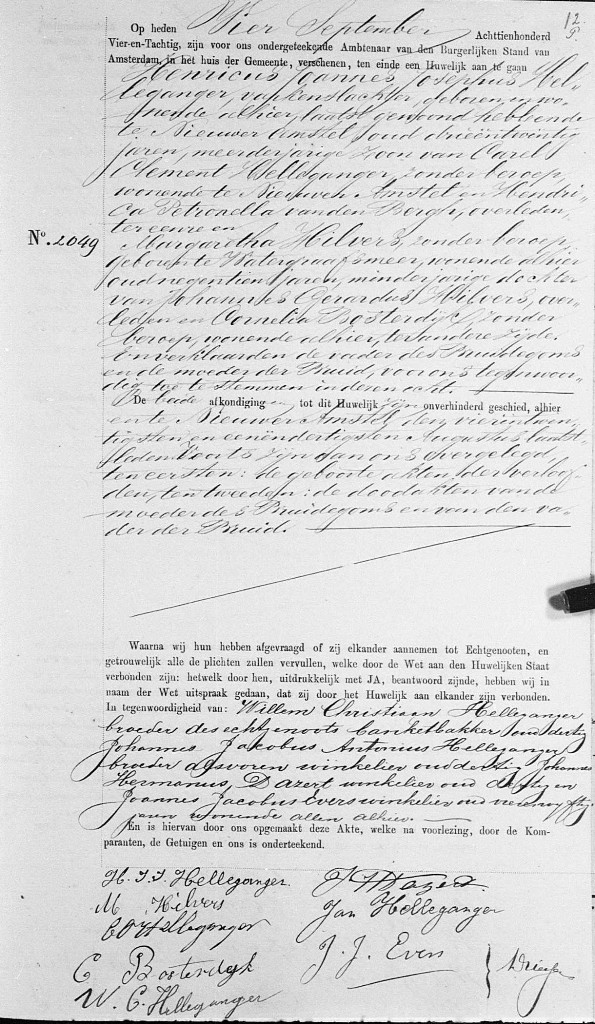 12.
Op heden Vier September Achttienhonderd
Vier-en-Tachtig, zijn voor ons ondergeteekende Ambtenaar van den Burgerlijken Stand van
Amsterdam, in het huis der Gemeente, verschenen, ten einde een Huwelijk aan te gaan
Henricus Joannes Josephus Hel-
leganger, varkensslachter, geboren en wo-
nende alhier, laatst gewoond hebbende
te Nieuwer Amstel, oud drieëntwintig
jaren, meerderjarige Zoon van Carel
Clement Helleganger, zonder beroep,
wonende te Nieuwer Amstel en Hendri-
ca Petronella van den Bergh, overleden,
ter eenre en
No. 2049
Margaretha Hilvers, zonder beroep,
geboren te Watergraafsmeer, wonende alhier
oud negentien jaren, minderjarige dochter
van Johannes Gerardus Hilvers, over-
leden en Cornelia Bosterdijk, zonder
beroep, wonende alhier, ter andere zijde.
En verklaarden de vader des Bruidegoms
en de moeder der Bruid, voor ons tegenwoor-
dig, toe te stemmen in deze echt.
De beide afkondigingen tot dit Huwelijk zijn onverhinderd geschied, alhier
en te Nieuwer Amstel den vierentwin-
tigsten en eenendertigsten Augustus laatst-
leden. Voorts zijn aan ons overgelegd
ten eersten: de geboorte akten der verloof-
den, ten tweeden: de doodakten van de
moeder des Bruidegoms en van den va-
der der Bruid.
Waarna wij hun hebben afgevraagd of zij elkander aannemen tot Echtgenooten, en
getrouwelijk alle de plichten zullen vervullen, welke door de Wet aan den Huwelijken Staat
verbonden zijn: hetwelk door hen, uitdrukkelijk met JA, beantwoord zijnde, hebben wij in
naam der Wet uitspraak gedaan, dat zij door het Huwelijk aan elkander zijn verbonden.
In tegenwoordigheid van: Willem Christiaan Helleganger
broeder des echtgenoots banketbakker oud dertig
Johannes Jakobus Antonius Helleganger
broeder des voren winkelier oud dertig Johannes
Hermanus Dazert winkelier oud dertig en
Joannes Jacobus Evers winkelier oud vierenvijftig
jaren wonende allen alhier.
En is hiervan door ons opgemaakt deze Akte, welke na voorlezing, door de Kom-
paranten, de Getuigen en ons is onderteekend.
H. J. J. Helleganger
J H Dazert
M Hilvers
Jan Helleganger
C C Helleganger
J. J. Evers
C Bosterdijk
W. C. Helleganger